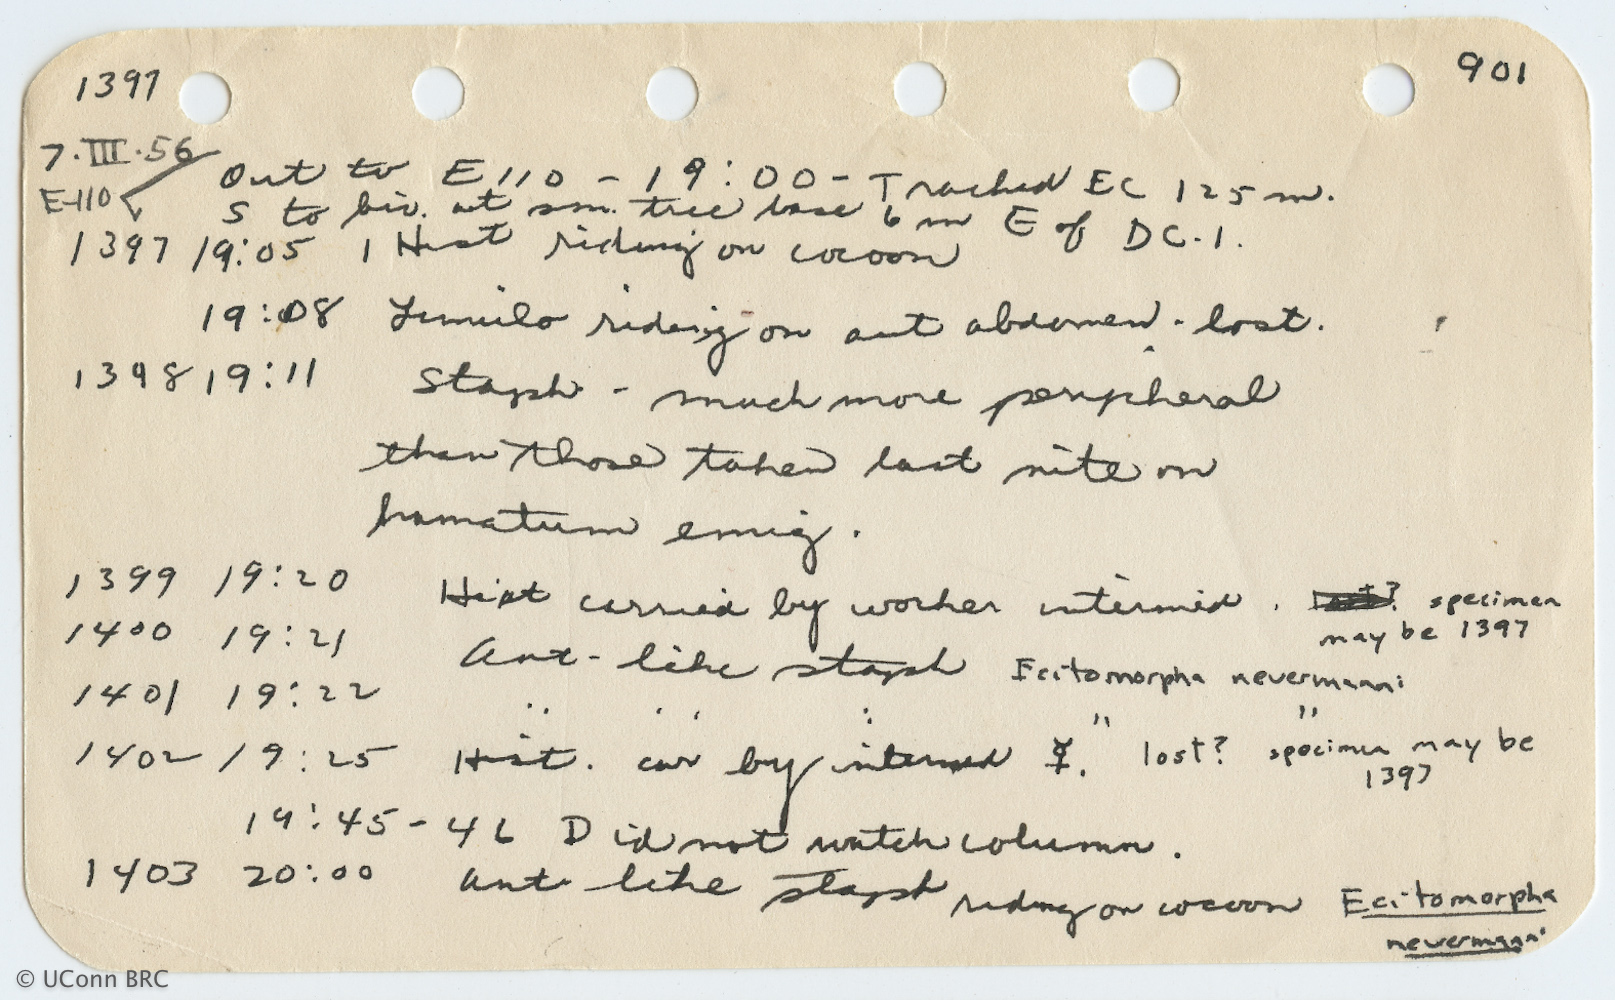 1397 901
7.III.56
E-110
Out to E110 - 19:00 - Tracked EC 125 m.
S to biv. at sm. tree base 6 m E of DC.1.
1397 19:05 1 Hist riding on cocoon
19:08 Limulo riding on ant abdomen - lost.
1398 19:11 Staph - much more peripheral
than those taken last nite on
hamatum emig.
1399 19:20 Hist carried by worker intermed. lost? specimen
may be 1397
1400 19:21 Ant-like staph Ecitomorpha nevermanni
1401 19:22 " " " " " "
1402 19:25 Hist. car by intermed ☿. lost? specimen may be
1397
19:45-46 Did not watch column.
1403 20:00 Ant like staph riding on cocoon Ecitomorpha
nevermanni
© UConn BRC